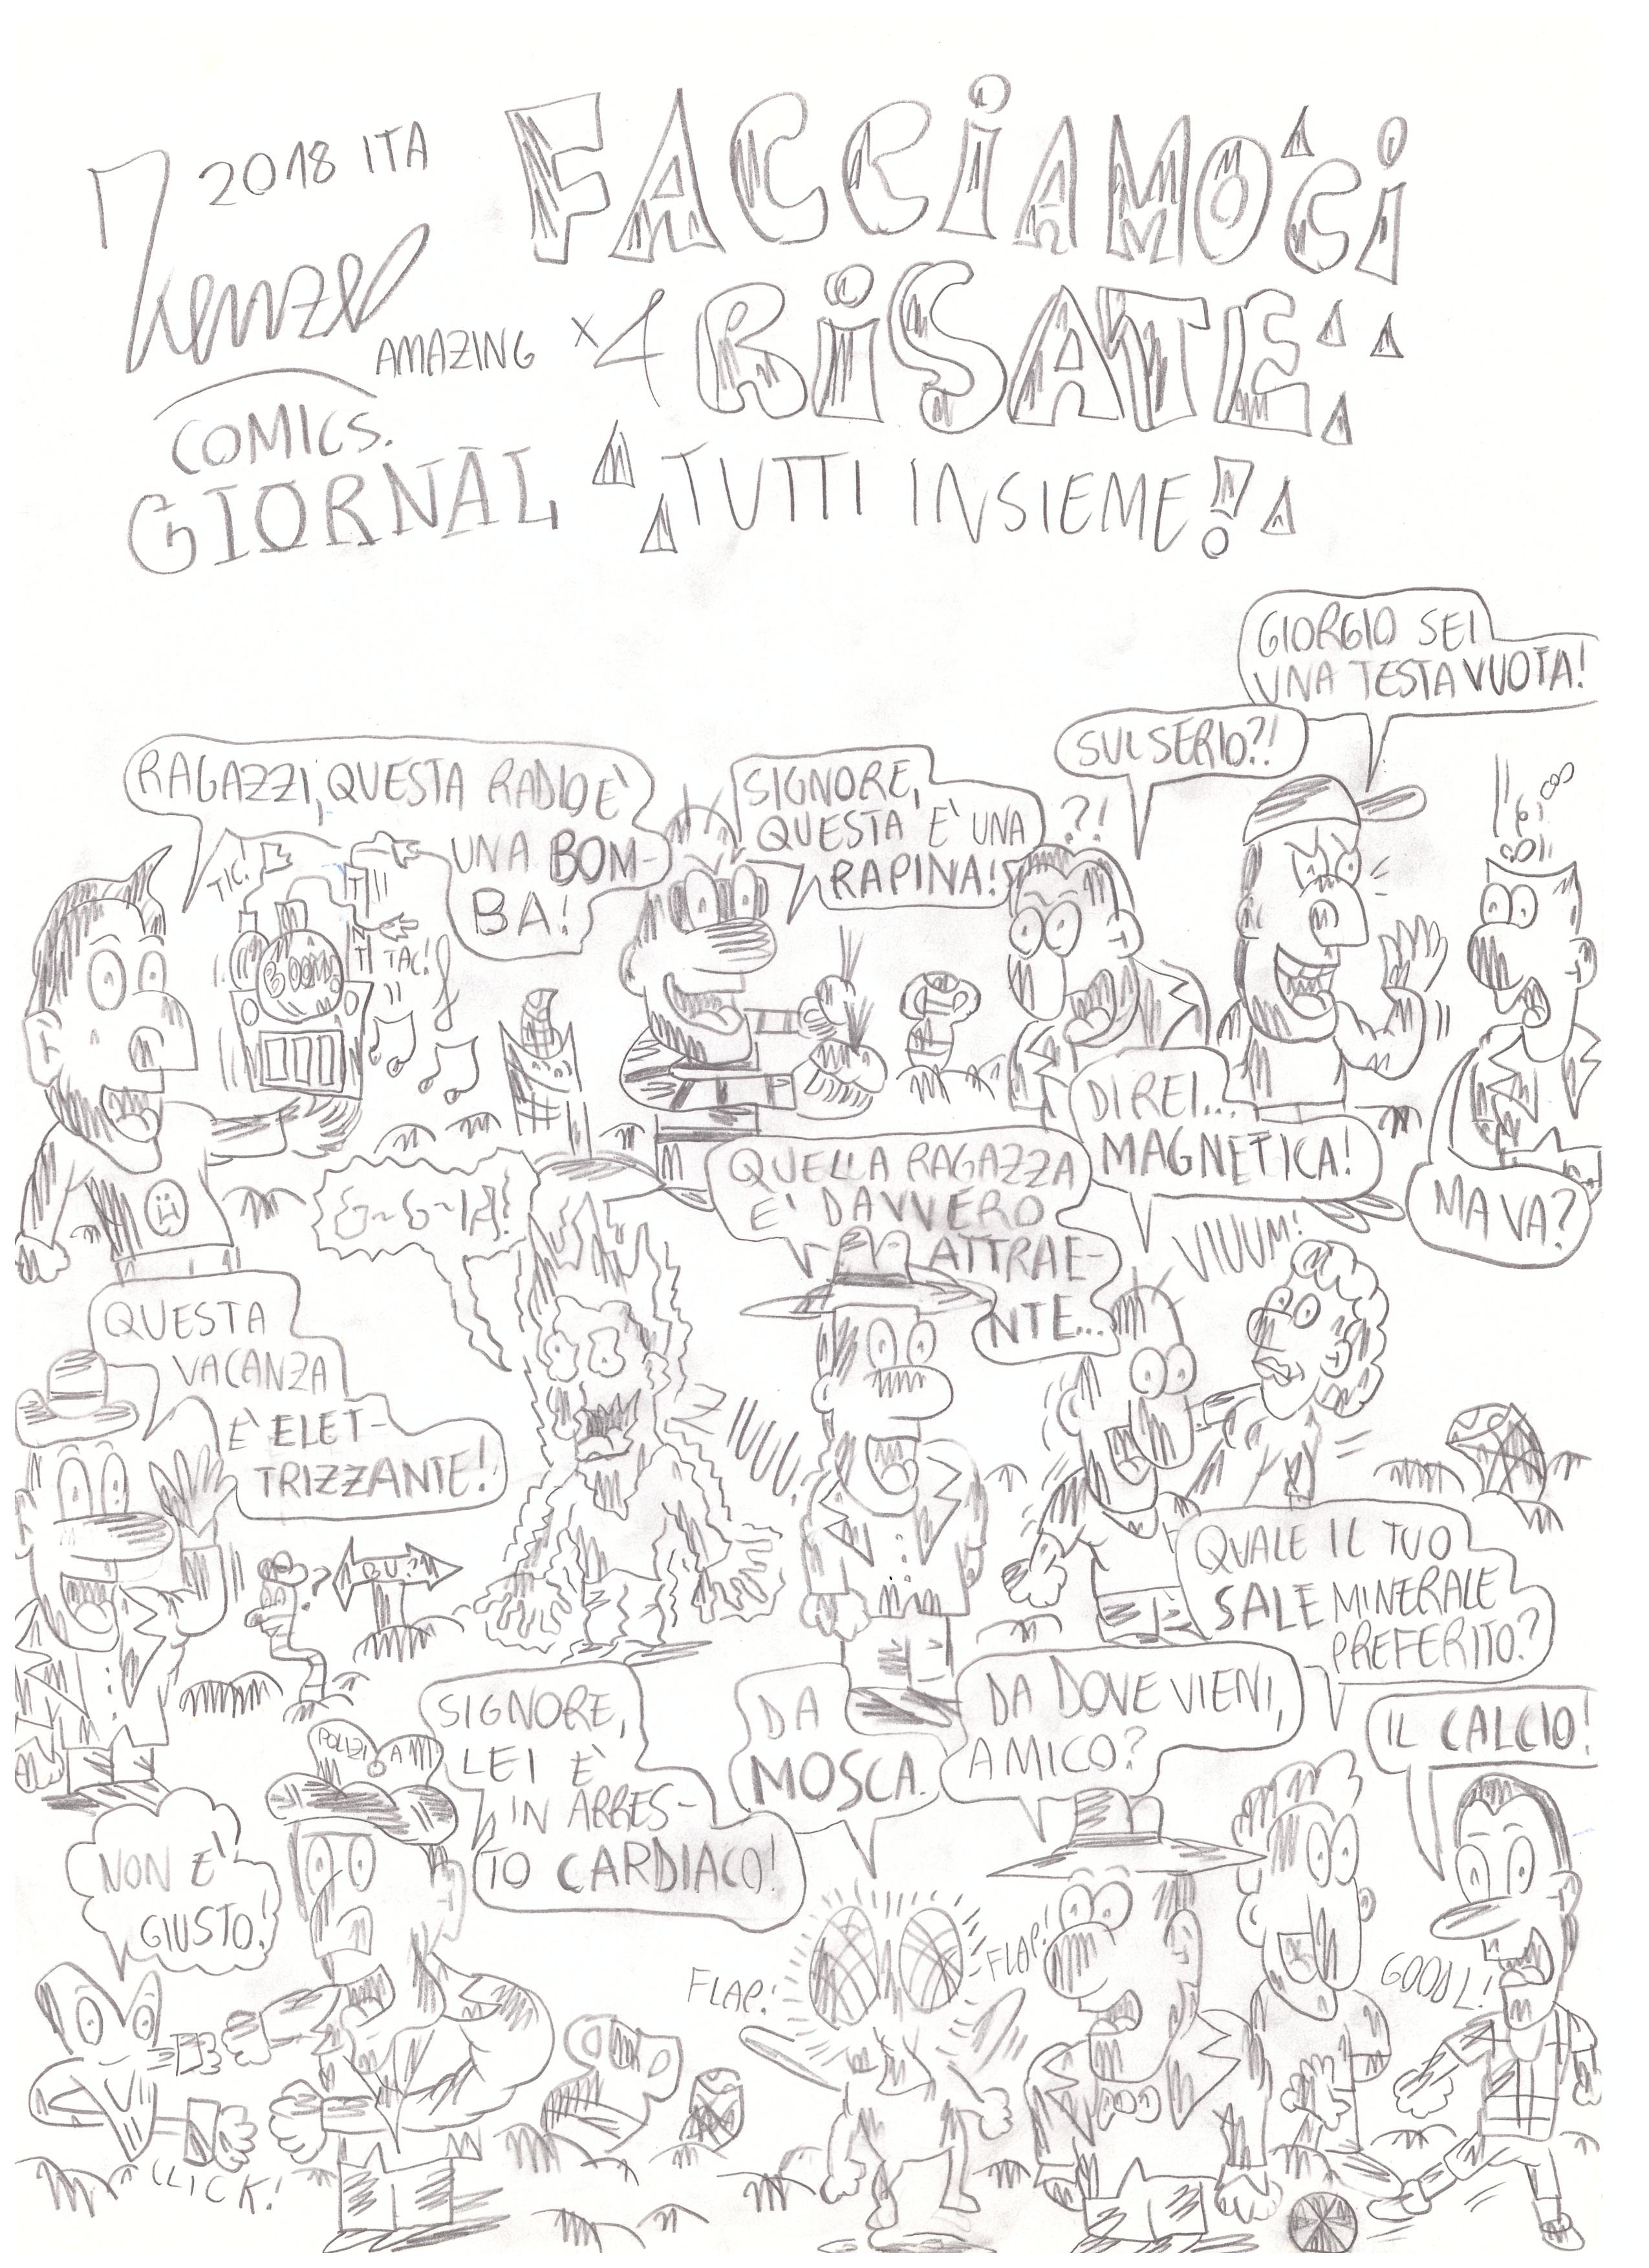 2018 ITA
FACCIAMOCI
Kenzo
AMAZING
×4 RISATE
COMICS.
GIORNAL
TUTTI INSIEME!
GIORGIO SEI
UNA TESTA VUOTA!
SUL SERIO?!
RAGAZZI, QUESTA RADIO È
UNA BOM-
BA!
TIC!
TAC!
BOOM
SIGNORE,
QUESTA È UNA
RAPINA!
?!
DIREI...
MAGNETICA!
MA VA?
QUELLA RAGAZZA
E' DAVVERO
ATTRAE-
NTE...
VIUUM!
QUESTA
VACANZA
È ELET-
TRIZZANTE!
?
BU?
QUALE IL TUO
SALE MINERALE
PREFERITO?
IL CALCIO!
POLIZIA
SIGNORE,
LEI È
IN ARRES-
TO CARDIACO!
DA
MOSCA.
DA DOVE VIENI,
AMICO?
NON E'
GIUSTO!
FLAP!
FLAP!
GOOAL!
CLICK!